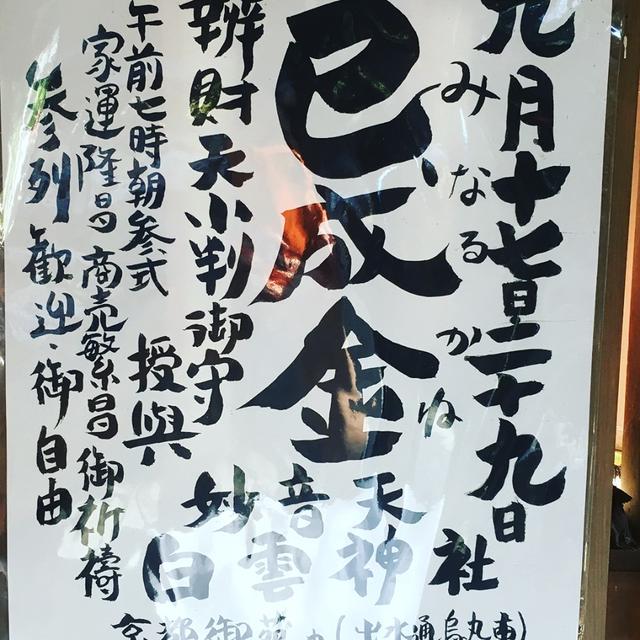 九月十七日二十九日
みなるかね
巳成金
辨財天小判御守
授與
午前七時朝参式
家運隆昌商売繁昌御祈祷
参列歓迎・御自由
妙音天
白雲神社
京都御苑内(出水通烏丸東)